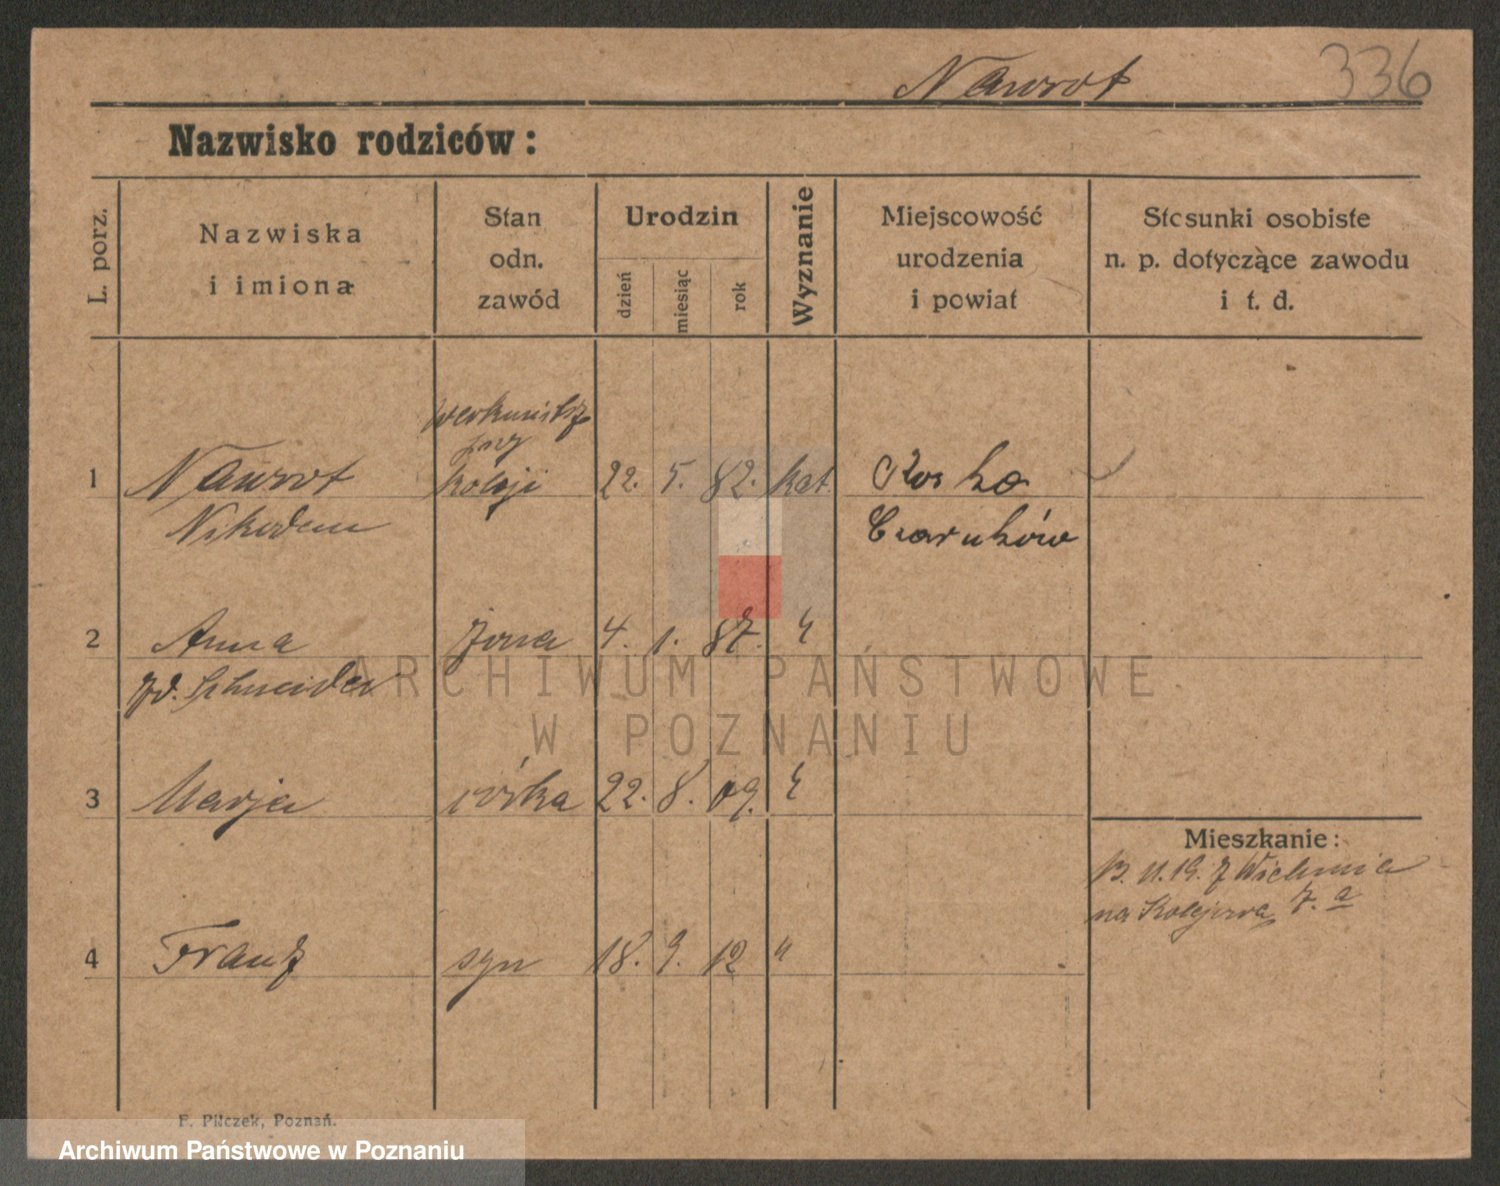 Nawrot 336
Nazwisko rodziców:
L. porz.
Nazwiska
i imiona
Stan
odn.
zawód
Urodzin
dzień
miesiąc
rok
Wyznanie
Miejscowość
urodzenia
i powiat
Stosunki osobiste
n. p. dotyczące zawodu
i t. d.
przy
1 Nawrot koleji 22. 5. 82. kat.
Nikodem Czarnków
2 Anna żona 4. 1. 87. "
Schneider
3 Marja córka 22. 8. 09. "
Mieszkanie:
na Kolejową 7. a
4 Franz syn 18. 9. 12 "
F. Pilczek, Poznań.
ARCHIWUM PAŃSTWOWE
W POZNANIU
Archiwum Państwowe w Poznaniu